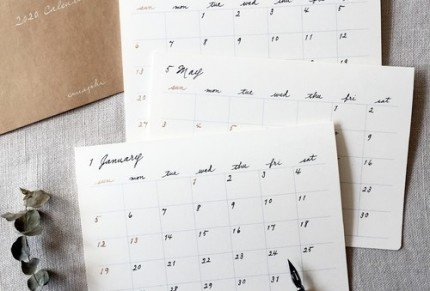 2020 Calenda
sun mon tue wed thu fri sat
1 2
6 7 8 9
13
5 May
sun mon tue wed thu fri sat
1 2
3 4 5 9
16
23
30
1 January
sun mon tue wed thu fri sat
1 2 3 4
5 6 7 8 9 10 11
12 13 14 15 16 17 18
19 20 21 22 23 24 25
31